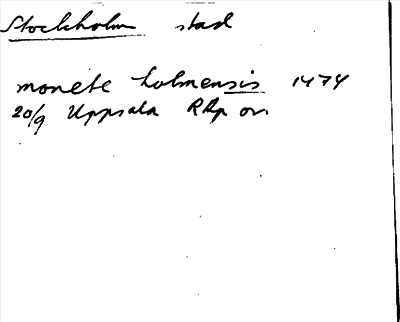 Stockholm stad
monete holmensis 1474
20/9 Uppsala RAp or.